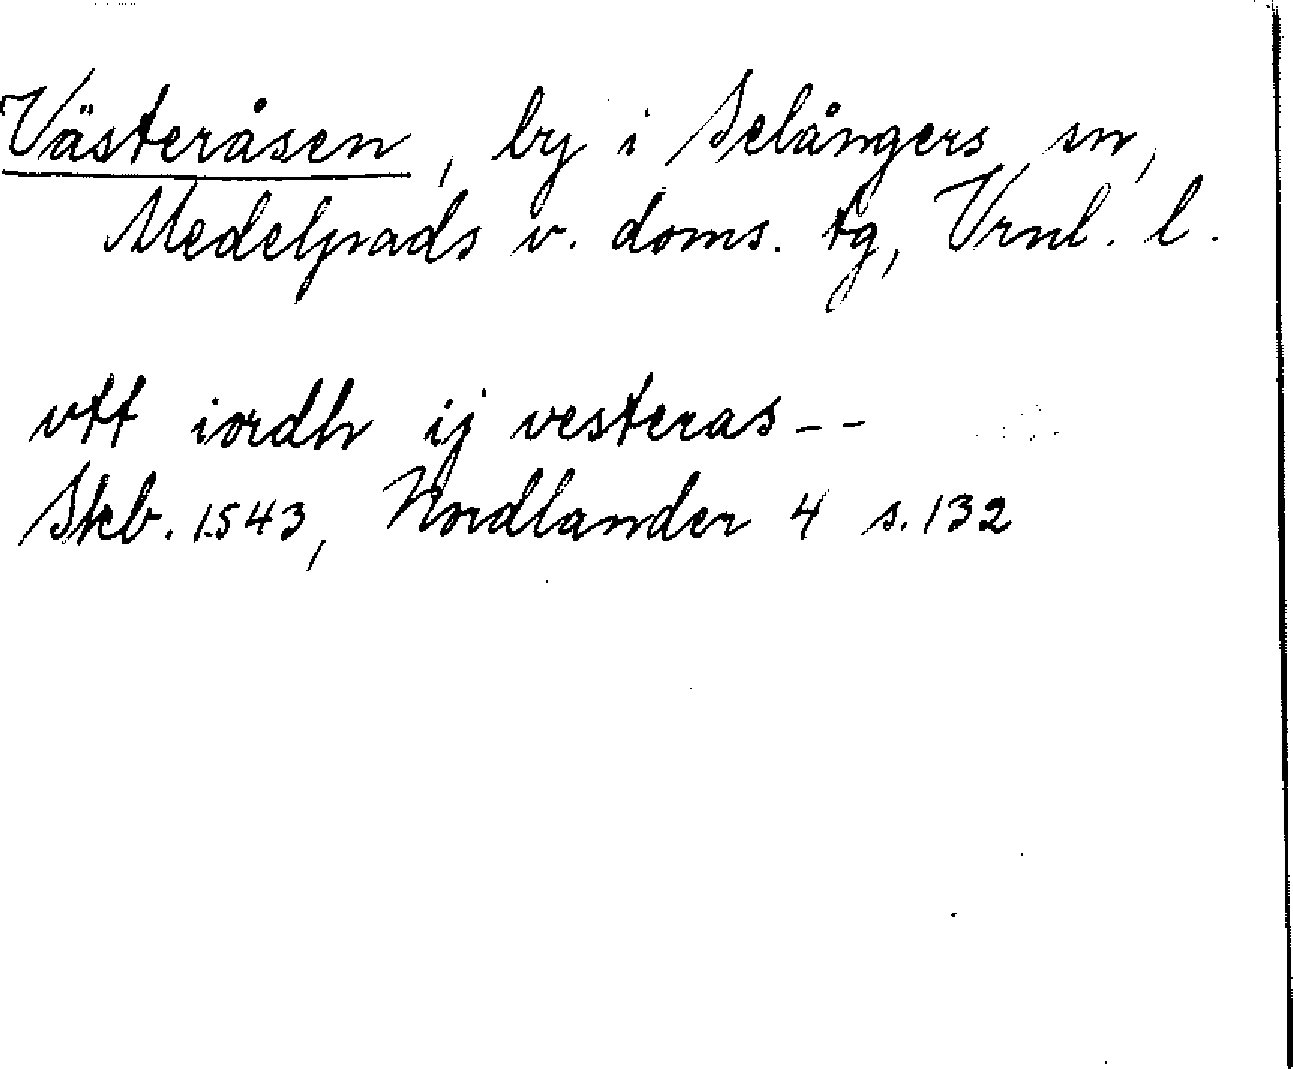 Västeråsen, by i Selångers sn,
Medelpads v. doms. tg, Vrnl. l.
vtt iordh ij vesteras --
Skb. 1543, Nordlander 4 s. 132